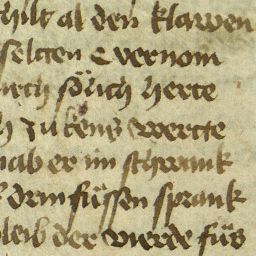 hilt al den klawen
seltten E vernom
urch sölich herte
zu kens wertte
hab er im schwank
drin füssen sprank
leib der vierde füs